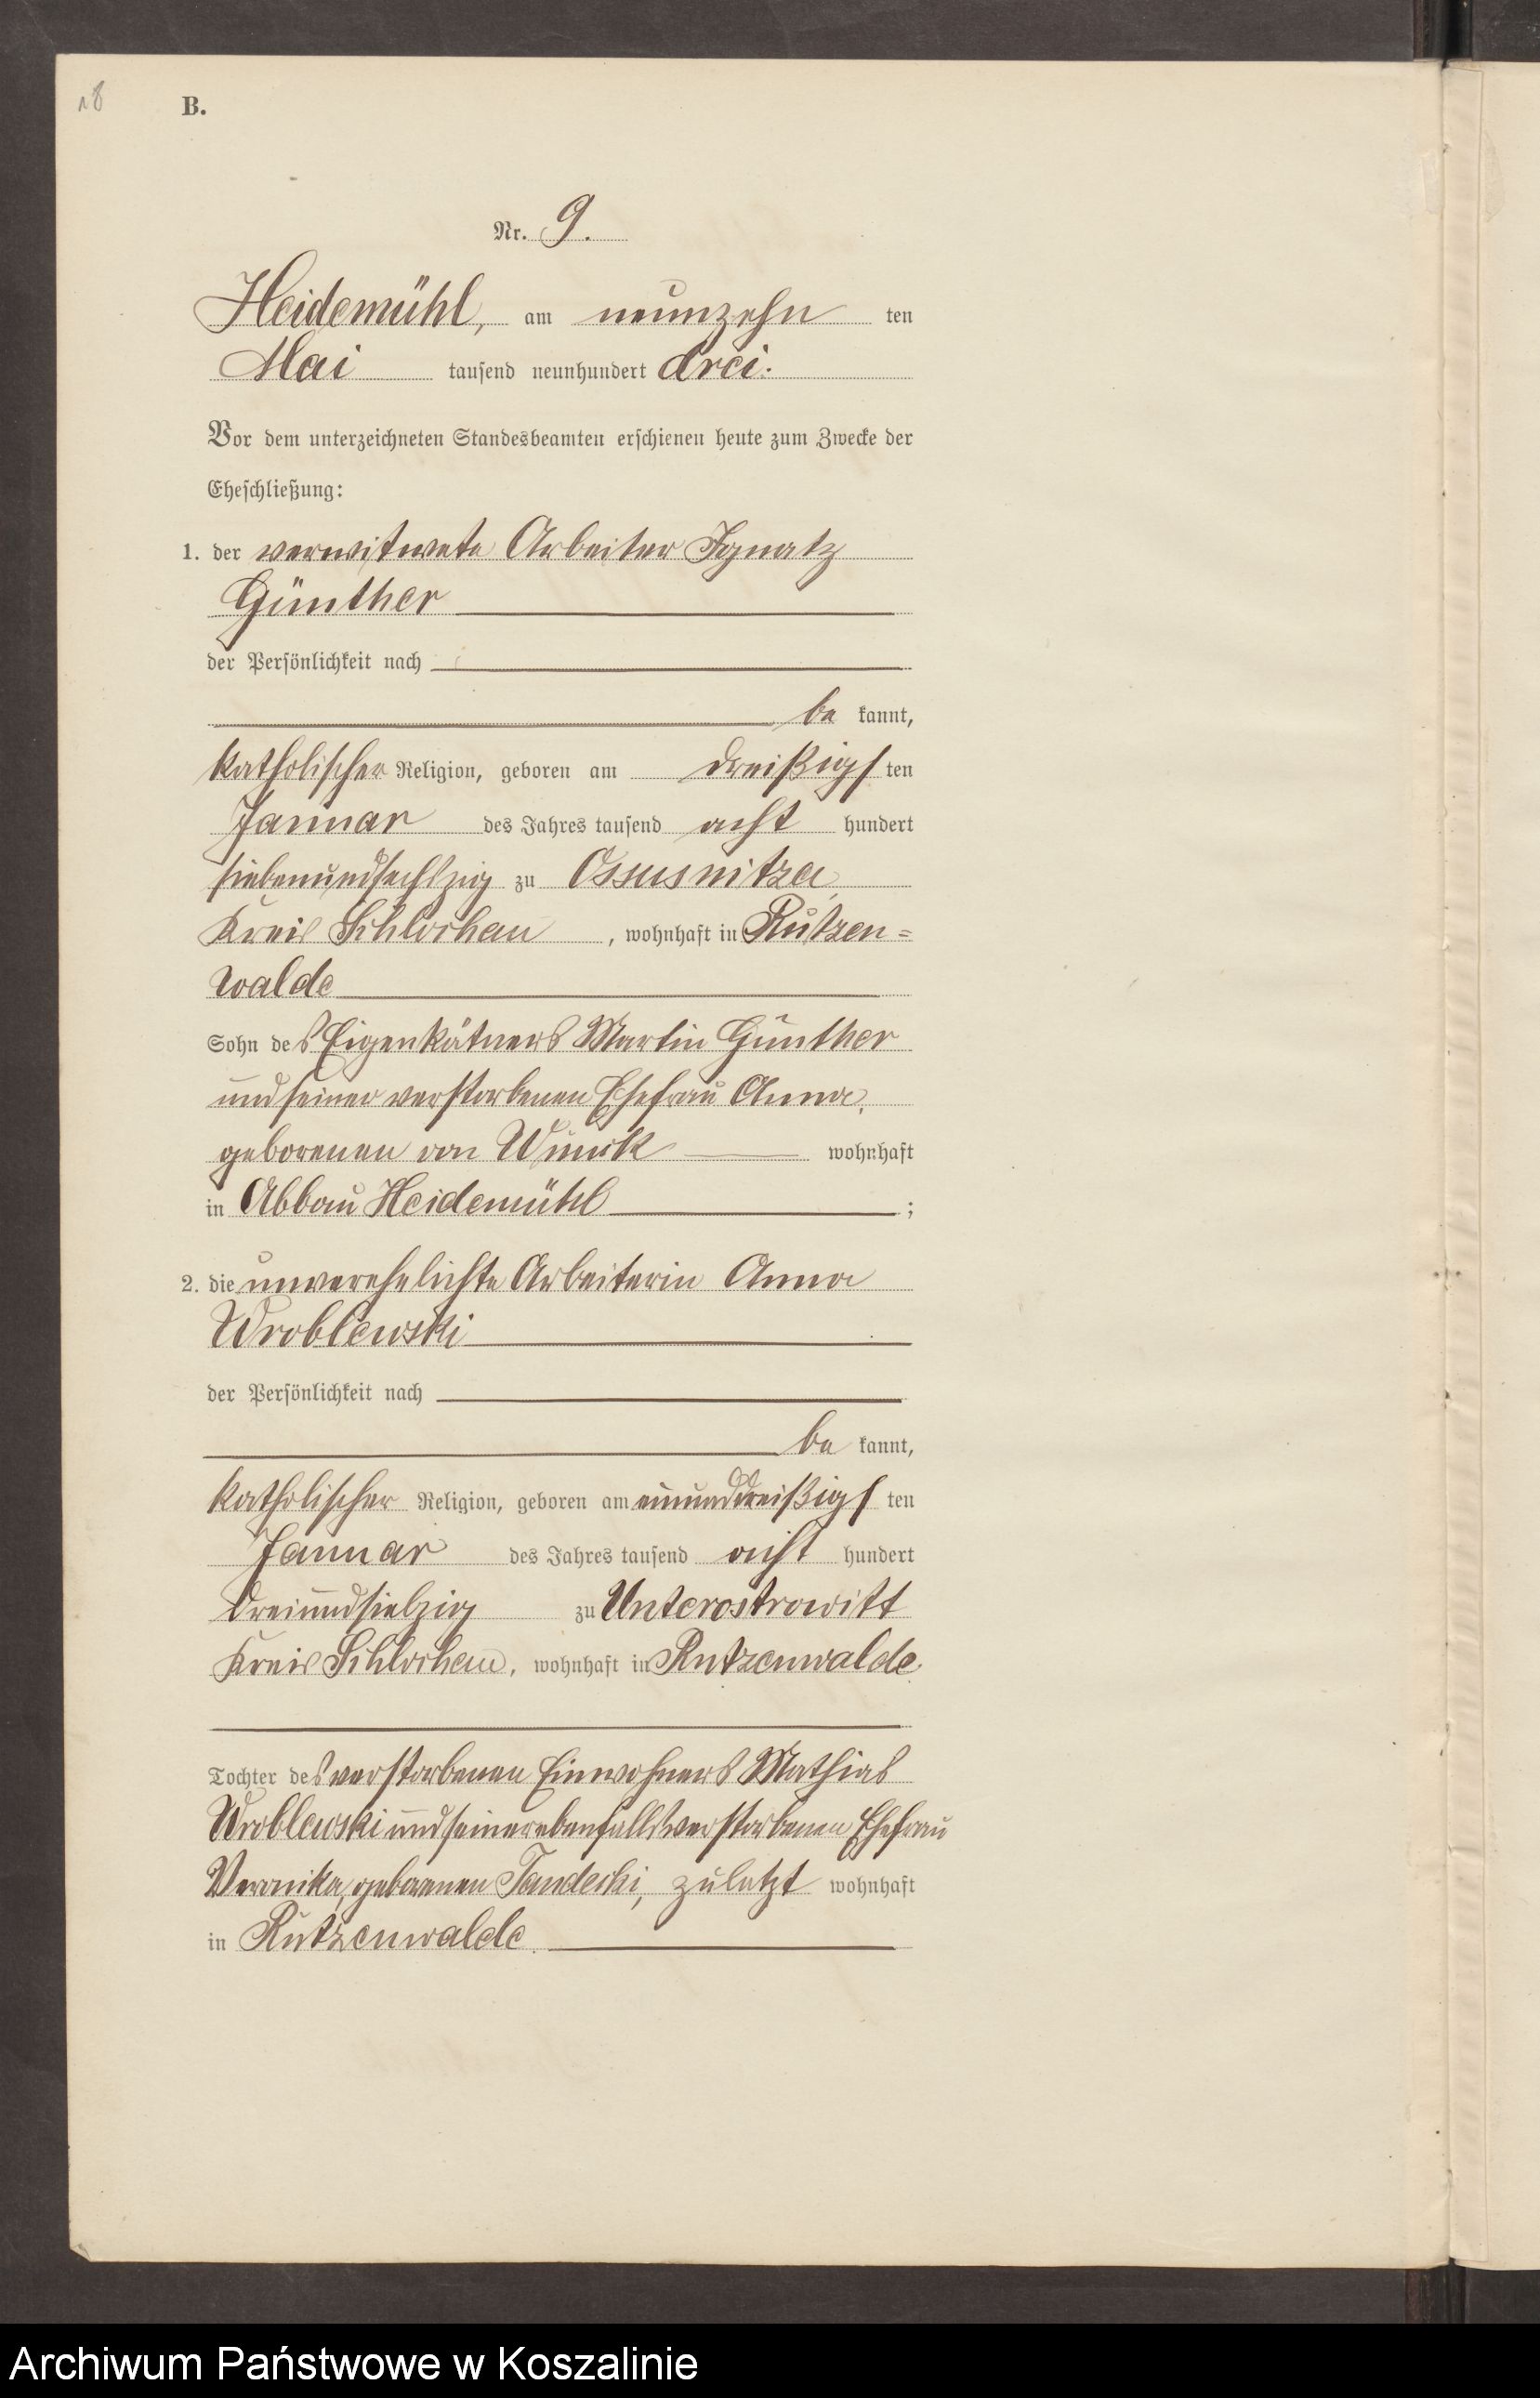 18
B.
Nr. 9.
Heidemühl, am neunzehn ten
Mai tausend neunhundert drei.
Vor dem unterzeichneten Standesbeamten erschienen heute zum Zwecke der
Eheschließung:
1. der verwitwete Arbeiter Ignatz
Günther
der Persönlichkeit nach
be kannt,
katholischer Religion, geboren am dreißigs ten
Januar des Jahres tausend acht hundert
siebenundsechszig zu Ossusnitza,
Kreis Schlochau, wohnhaft in Rutzen=
walde
Sohn des Eigenkätners Martin Günther
und seiner verstorbenen Ehefrau Anna,
geborenen von wohnhaft
in Abbau Heidemühl;
2. die unverehelichte Arbeiterin Anna
Wroblewski
der Persönlichkeit nach
be kannt,
katholischer Religion, geboren am einunddreißigs ten
Januar des Jahres tausend acht hundert
dreiundsiebzig zu Unterostrowitt
Kreis Schlochau, wohnhaft in Rutzenwalde.
Tochter des verstorbenen Einwohners Mathias
Wroblewski und seiner ebenfalls verstorbenen Ehefrau
Veronika, geborenen Tandecki, zuletzt wohnhaft
in Rutzenwalde.
Archiwum Państwowe w Koszalinie